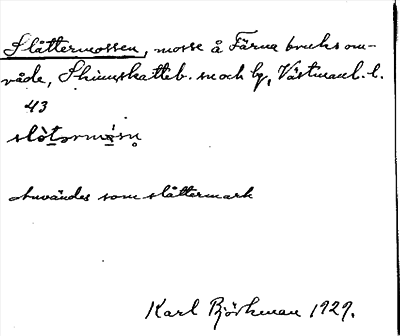 Slåttermossen, mosse å Färna bruksom-
råde, Skinnskatteb. sn och bg, Västmanl. l.
43
slòtərmòsn̥
Användes som slåttermark
Karl Björkman 1929.